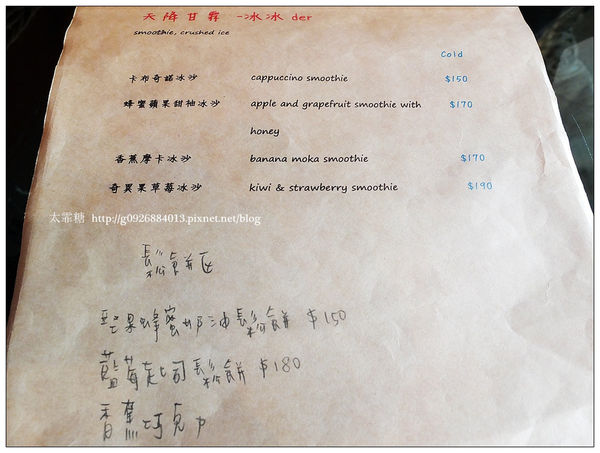 天降甘霖 -冰冰 der
smoothie, crushed ice
Cold
卡布奇諾冰沙 cappuccino smoothie $150
蜂蜜蘋果甜柚冰沙 apple and grapefruit smoothie with $170
honey
香蕉摩卡冰沙 banana moka smoothie $170
奇異果草莓冰沙 kiwi & strawberry smoothie $190
太霏糖 http://g0926884013.pixnet.net/blog
鬆餅区
堅果蜂蜜奶油鬆餅 $150
藍莓起司鬆餅 $180
香蕉巧克力